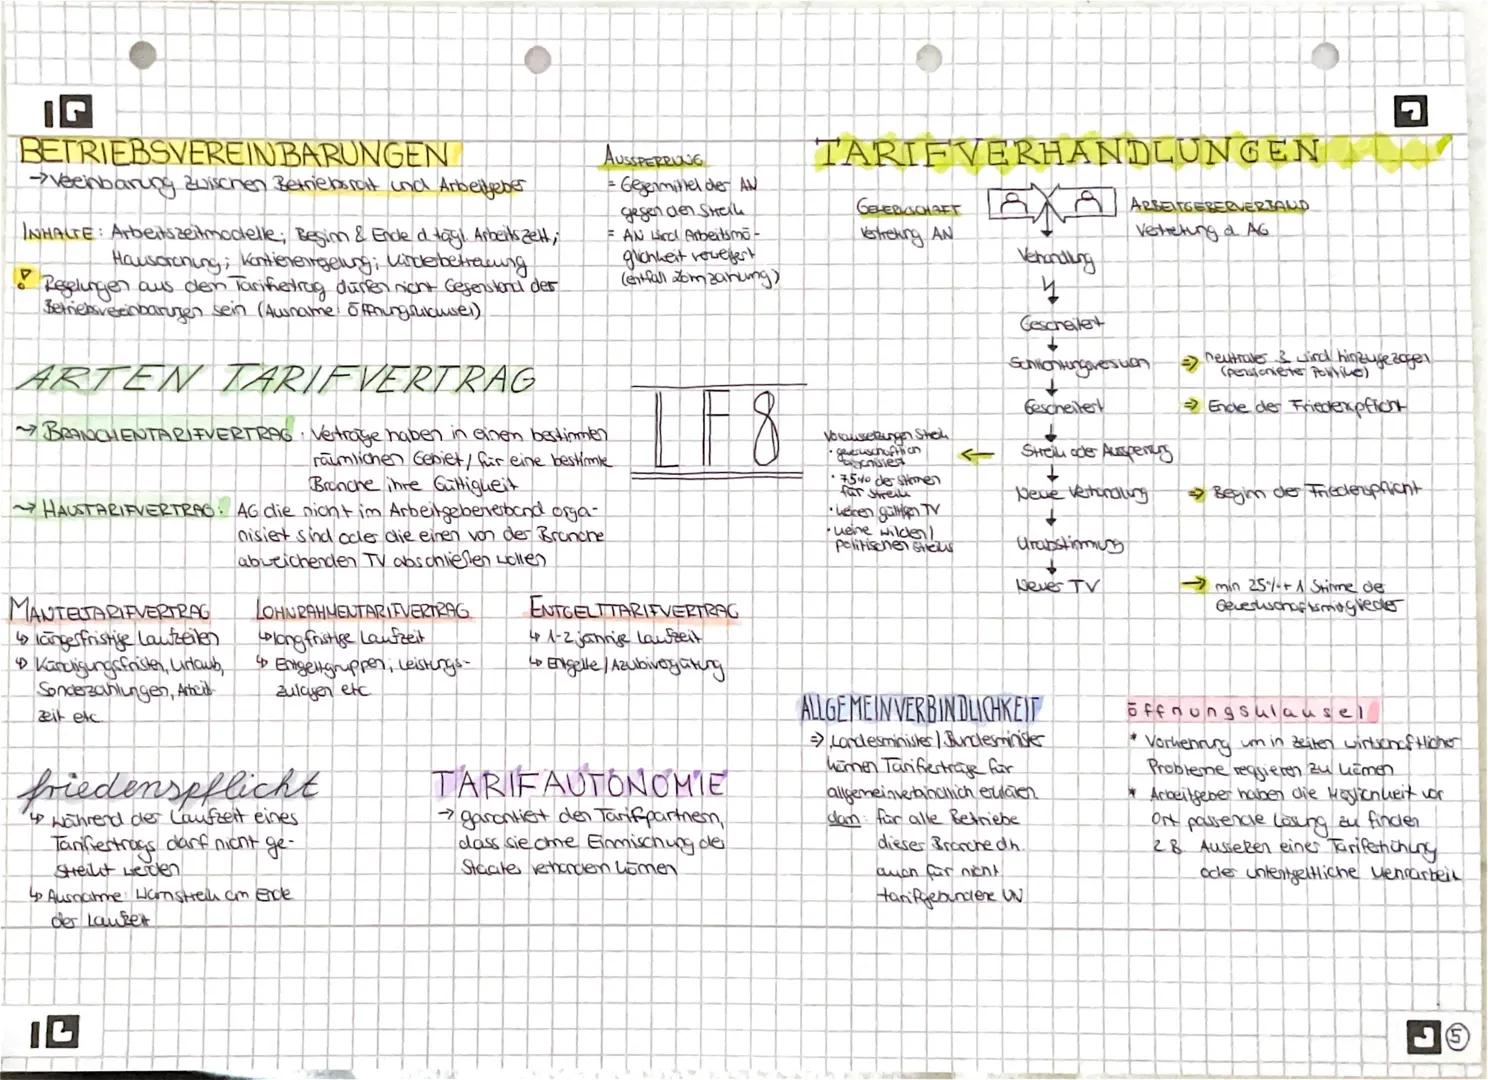 BETRIEBSVEREINBARUNGEN
→ Vereinbarung zwischen Betriebsrat und Arbeitgeber
INHALTE: Arbeitszeitmodelle; Beginn & Ende d. tägl. Arbeitszeit;
Hausordnung; Kantienenregelung; Kinderbetreuung
! Regelungen aus dem Tarifvertrag dürfen nicht Gegenstand der
Betriebsvereinbarungen sein (Ausname: Öffnungsklausel)
AUSSPERRUNG
= Gegenmittel der AN
gegen den Streik
= AN wird Arbeitsmö-
glichkeit verweigert
(entfall Lohnzahlung)
ARTEN TARIFVERTRAG
→ BRANCHENTARIFVERTRAG: Verträge haben in einen bestimmen
räumlichen Gebiet / für eine bestimmte
Branche ihre Gültigkeit
→ HAUSTARIFVERTRAG: AG die nicht im Arbeitgeberverband orga-
nisiert sind oder die einen von der Branche
abweichenden TV abschließen wollen
LF8
MANTELTARIFVERTRAG
↳ längerfristige Laufzeiten
↳ Kündigungsfristen, Urlaub,
Sonderzahlungen, Arbeit-
zeit etc
LOHNRAHMENTARIFVERTRAG
↳ langfristige Laufzeit
↳ Entgeltgruppen; Leistungs-
zulagen etc
ENTGELTTARIFVERTRAG
↳ 1-2 jährige Laufzeit
↳ Entgelte / Azubivergütung
friedenspflicht
↳ während der Laufzeit eines
Tarifvertrags darf nicht ge-
streikt werden
↳ Ausnahme: Warnstreik am Ende
der Laufzeit
TARIFAUTONOMIE
→ garantiert den Tarifpartnern,
dass sie ohne Einmischung des
Staates verhandeln können
TARIFVERHANDLUNGEN
GEWERKSCHAFT
Vertretung AN
ARBEITGEBERVERBAND
Vertretung d. AG
Verhandlung
↓
Gescheitert
↓
Schlichtungsversuch ⇒ neutraler 3. wird hinzugezogen
(pensionierter Politiker)
↓
Gescheitert ⇒ Ende der Friedenspflicht
↓
← Streik oder Aussperrung
Voraussetzungen Streik
• gewerkschaftlich
organisiert
• 75% der Stimmen
für Streik
• keinen gültigen TV
• keine wilden /
politischen Streiks
↓
Neue Verhandlung ⇒ Beginn der Friedenspflicht
↓
Urabstimmung
↓
Neues TV → min 25% + 1 Stimme der
Gewerkschaftsmitglieder
ALLGEMEINVERBINDLICHKEIT
⇒ Landesminister / Bundesminister
können Tarifverträge für
allgemeinverbindlich erklären
dann: für alle Betriebe
dieser Branche dh.
auch für nicht
tarifgebundene UN
öffnungsklausel
* Vorkehrung um in Zeiten wirtschaftlicher
Probleme reagieren zu können
* Arbeitgeber haben die Möglichkeit vor
Ort passende Lösung zu finden
z.B. Aussetzen einer Tariferhöhung
oder unentgeltliche Mehrarbeit
5